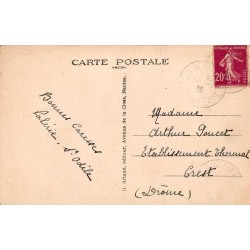 CARTE POSTALE
20
Bonnes Caresses
Valérie, St Odile
G. Artaud, éditeur, Avenue de la Close, Nantes.
Madame
Arthur Poucet
Etablissement Thermal
Crest
(Drôme)